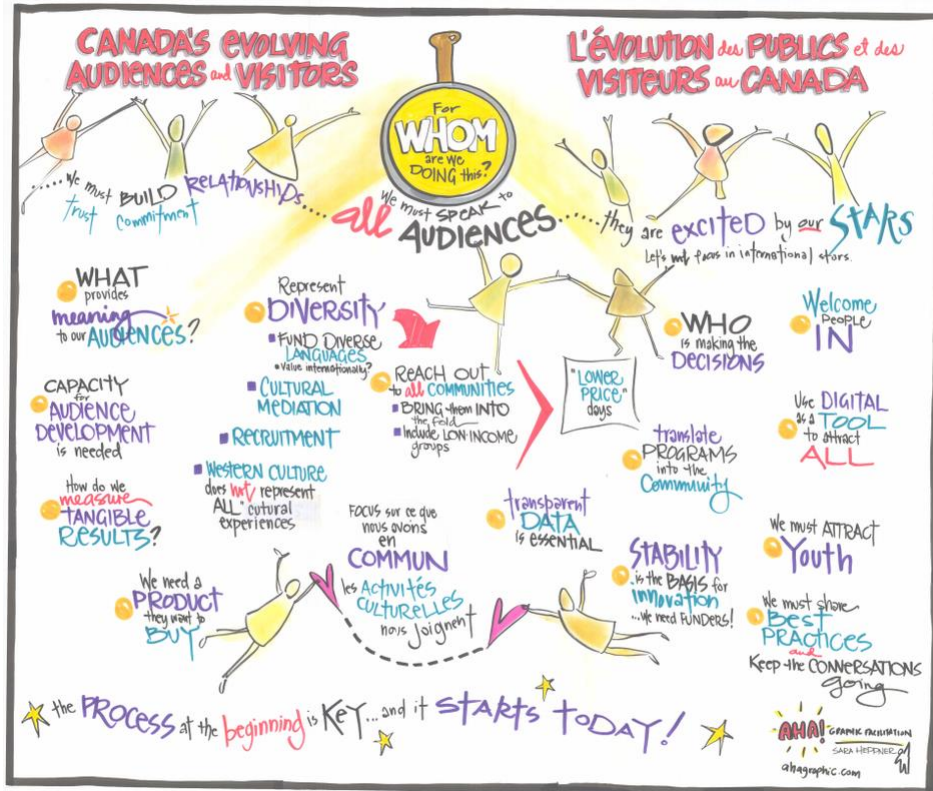 CANADA'S EVOLVING
AUDIENCES and VISITORS
L'ÉVOLUTION des PUBLICS et des
VISITEURS au CANADA
For
WHOM
are we
DOING this?
.....We must BUILD RELATIONSHIPS....
trust commitment
We must SPEAK to
all AUDIENCES
......they are EXCITED by our STARS
Let's not focus in international stars.
WHAT
provides
meaning
to our AUDIENCES?
CAPACITY
for
AUDIENCE
DEVELOPMENT
is needed
How do we
measure
TANGIBLE
RESULTS?
We need a
PRODUCT
they want to
BUY
Represent
DIVERSITY
FUND DIVERSE
LANGUAGES
• Value internationally?
CULTURAL
MEDIATION
RECRUITMENT
WESTERN CULTURE
does not represent
ALL" cutural
experiences
REACH OUT
to all COMMUNITIES
BRING them INTO
the fold
Include LOW INCOME
groups
"LOWER
PRICE"
days
FOCUS sur ce que
nous avoins
en
COMMUN
les ACTIVITÉS
CULTURELLES
nous joignent
transparent
DATA
is essential
WHO
is making the
DECISIONS
translate
PROGRAMS
into the
Community
STABILITY
is the BASIS for
innovation
...We need FUNDERS!
Welcome
PEOPLE
IN
Use DIGITAL
as a TOOL
to attract
ALL
We must ATTRACT
Youth
We must share
Best
PRACTICES
and
KEEP the CONVERSATIONS
going
the PROCESS at the beginning is KEY...and it STARTS TODAY!
AHA!
GRAPHIC FACILITATION
SARA HEPPNER
ahagraphic.com